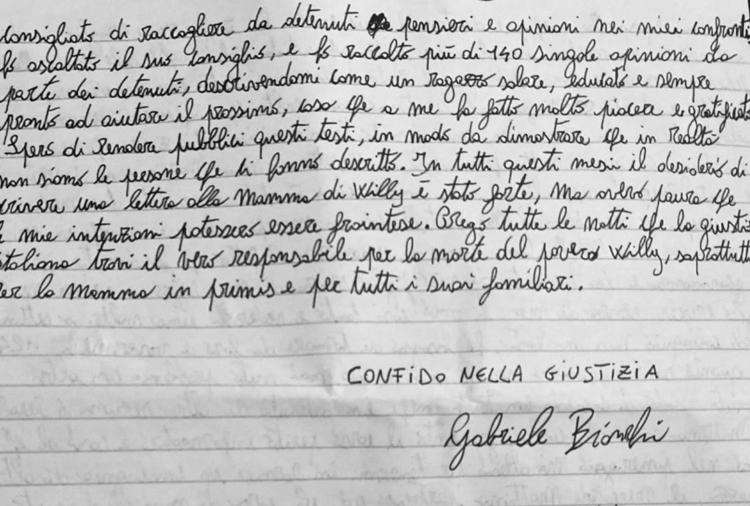 consigliato di raccogliere da detenuti pensieri e opinioni nei miei confronti
ho ascoltato il suo consiglio, e ho raccolto più di 140 singole opinioni da
parte dei detenuti, descrivendomi come un ragazzo solare, educato e sempre
pronto ad aiutare il prossimo, cosa che a me ha fatto molto piacere e gratificato
Spero di rendere pubblici questi testi, in modo da dimostrare che in realtà
non siamo le persone che ci hanno descritto. In tutti questi mesi il desiderio di
crivere una lettera alla Mamma di Willy è stato forte, ma avevo paura che
e mie intenzioni potessero essere fraintese. Prego tutte le notti che la giustizi
italiana trovi il vero responsabile per la morte del povero Willy, soprattutt
er la mamma in primis e per tutti i suoi familiari.
CONFIDO NELLA GIUSTIZIA
Gabriele Bianchi